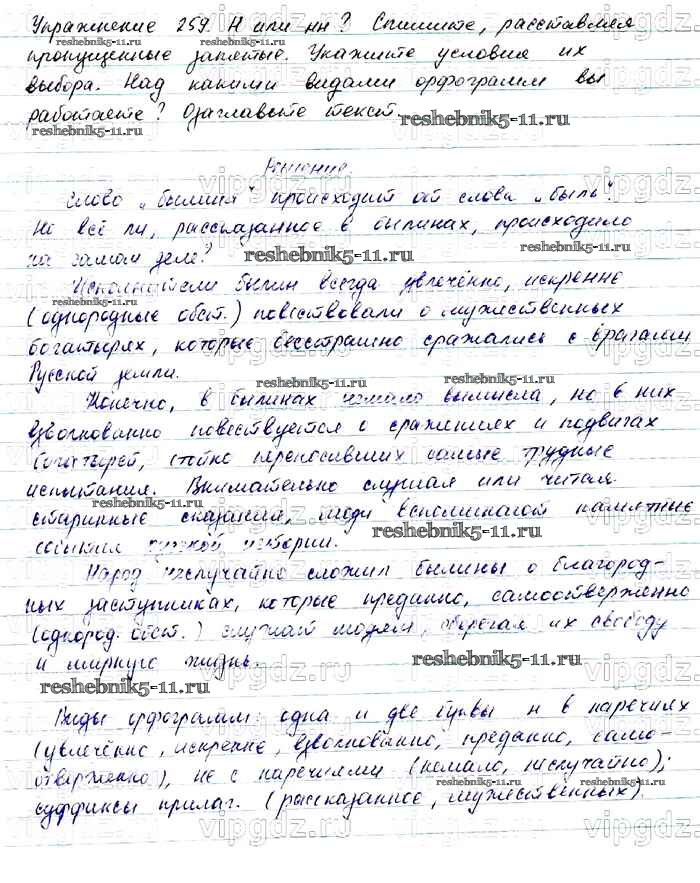 Упражнение 259. Н или нн? Спишите, расставляя
пропущенные запятые. Укажите условия их
выбора. Над какими видами орфограмм вы
работаете? Озаглавьте текст.
reshebnik5-11.ru reshebnik5-11.ru
Решение
Слово „былина" происходит от слова „быль".
Но всё ли, рассказанное в былинах, происходило
на самом деле?
reshebnik5-11.ru
Исполнители былин всегда увлечённо, искренне
(однородные обст.) повествовали о мужественных
reshebnik5-11.ru
богатырях, которые бесстрашно сражались с врагами
Русской земли.
reshebnik5-11.ru
Конечно, в былинах немало вымысла, но в них
взволнованно повествуется о сражениях и подвигах
богатырей, стойко переносивших самые трудные
испытания. Внимательно слушая или читая
reshebnik5-11.ru
старинные сказания, люди вспоминают памятные
reshebnik5-11.ru
события русской истории.
Народ неслучайно сложил былины о благород-
ных заступниках, которые преданно, самоотверженно
(однород. обст.) служат людям, оберегая их свободу
и мирную жизнь.
reshebnik5-11.ru reshebnik5-11.ru
Виды орфограмм: одна и две буквы н в наречиях
(увлечённо, искренне, взволнованно, преданно, само-
отверженно), не с наречиями (немало, неслучайно);
reshebnik5-11.ru reshebnik5-11.ru
суффиксы прилаг. (рассказанное, мужественных).
vipgdz.ru